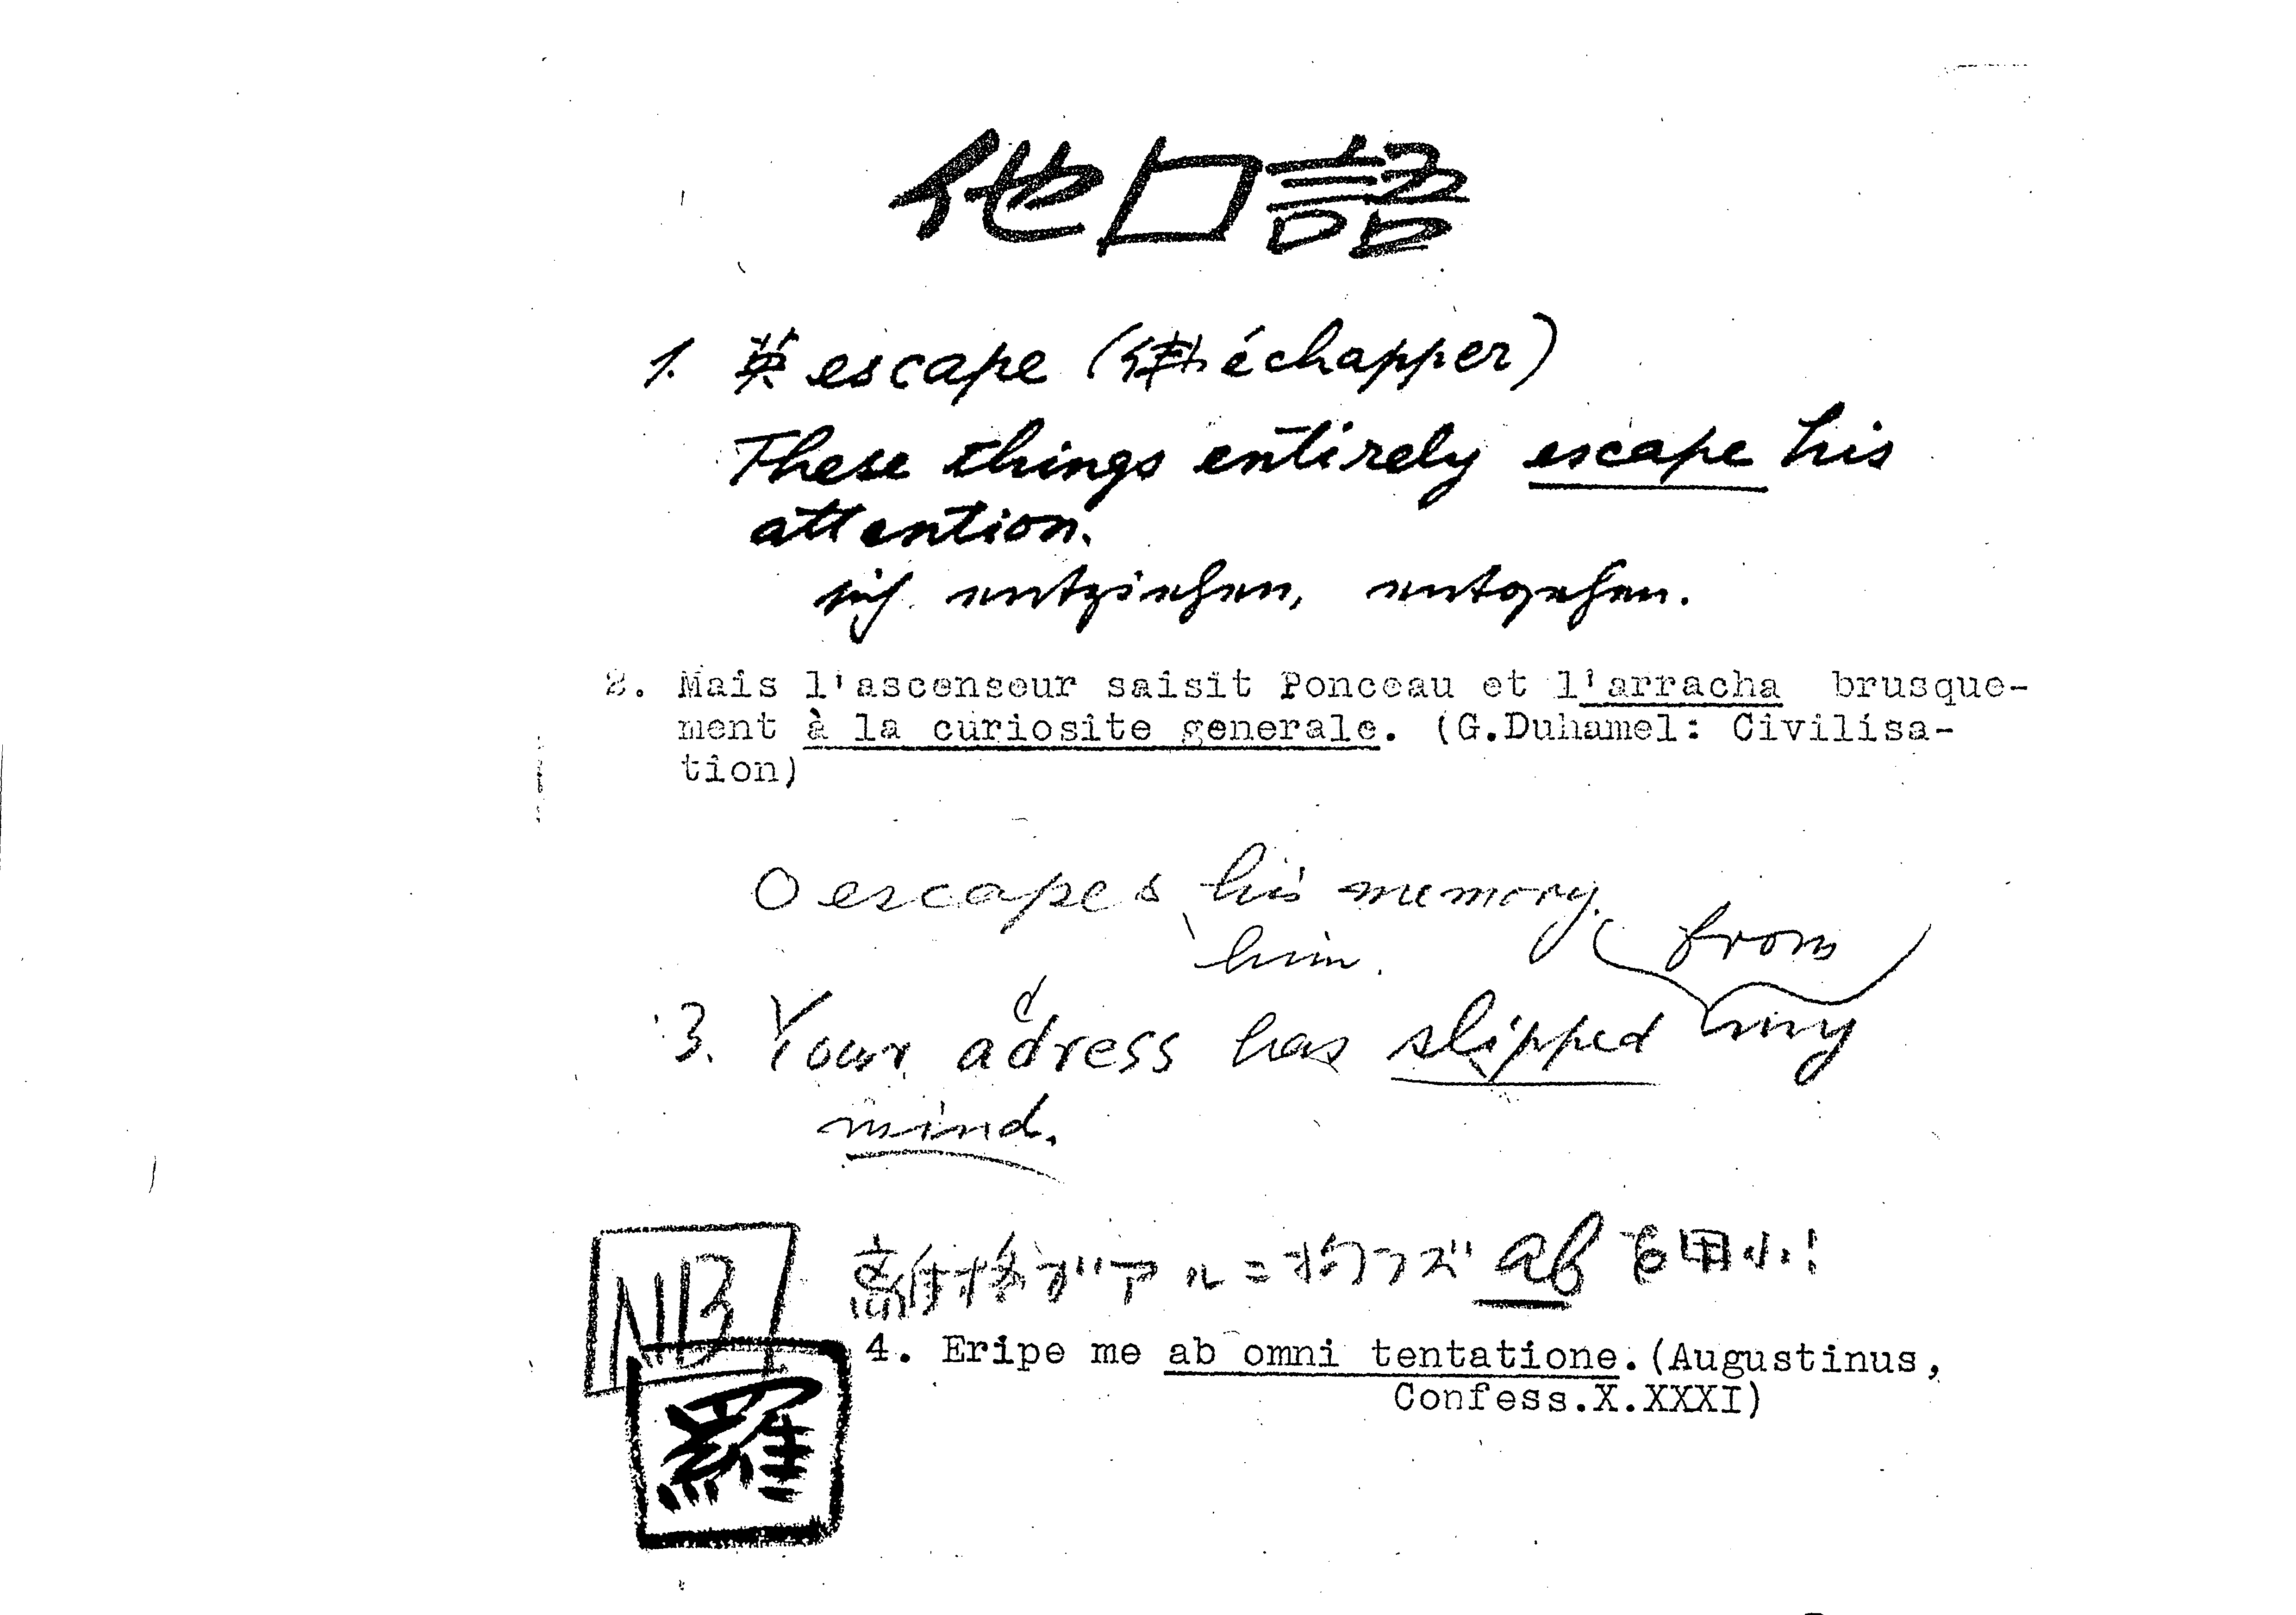 他口語
1. 英 escape (佛 échapper)
These things entirely escape his
attention.
sich entziehen, entgehen.
2. Mais l'ascenseur saisit Ponceau et l'arracha brusque-
ment à la curiosite generale. (G.Duhamel: Civilisa-
tion)
O escapes his memory.
him.
from
d
3. Your adress has slipped my
mind.
NB
ガアルニ拘ラズ ab
羅
4. Eripe me ab omni tentatione.(Augustinus,
Confess.X.XXXI)